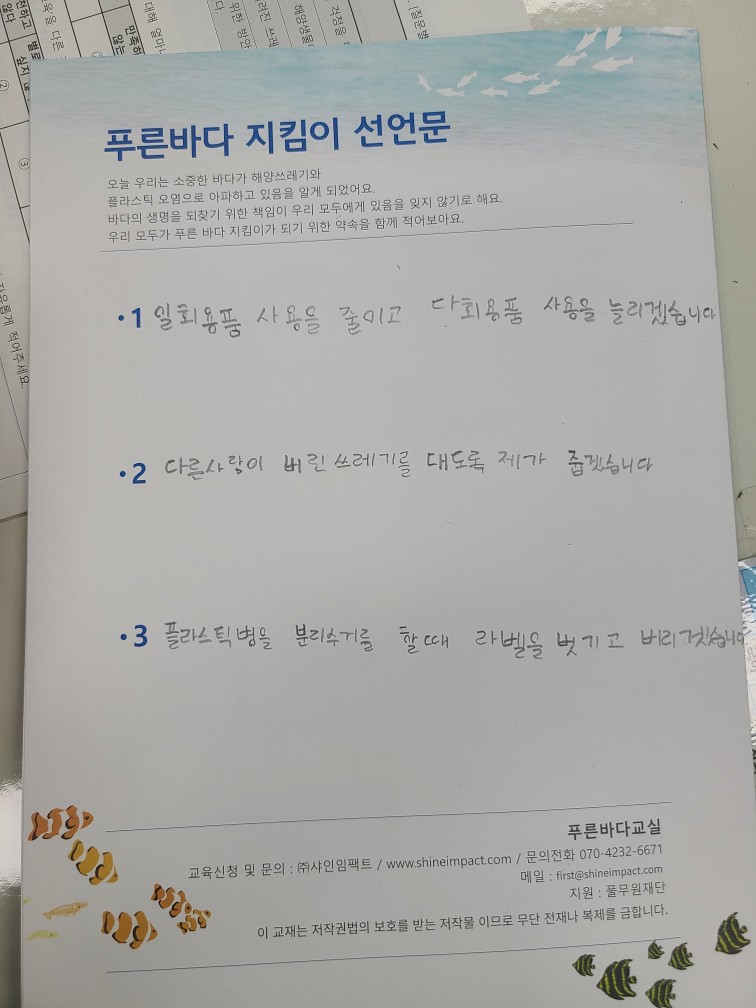 푸른바다 지킴이 선언문
오늘 우리는 소중한 바다가 해양쓰레기와
플라스틱 오염으로 아파하고 있음을 알게 되었어요.
바다의 생명을 되찾기 위한 책임이 우리 모두에게 있음을 잊지 않기로 해요.
우리 모두가 푸른 바다 지킴이가 되기 위한 약속을 함께 적어보아요.
•1 일회용품 사용을 줄이고 다회용품 사용을 늘리겠습니다
•2 다른사람이 버린 쓰레기를 대도록 제가 줍겠습니다
•3 플라스틱병을 분리수거를 할때 라벨을 벗기고 버리겟습니다
푸른바다교실
교육신청 및 문의 : ㈜샤인임팩트 / www.shineimpact.com / 문의전화 070-4232-6671
메일 : first@shineimpact.com
지원 : 풀무원재단
이 교재는 저작권법의 보호를 받는 저작물 이므로 무단 전재나 복제를 금합니다.